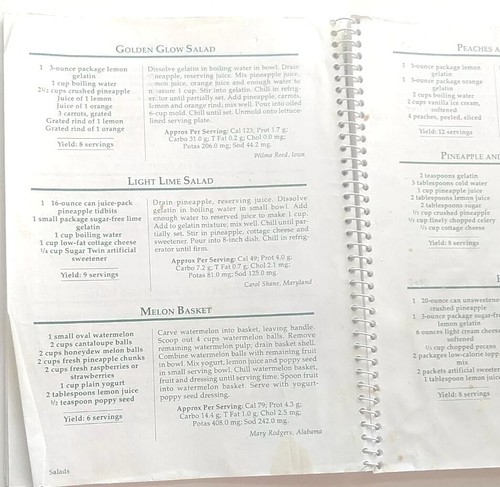 GOLDEN GLOW SALAD
1 3-ounce package lemon
gelatin
1 cup boiling water
2½ cups crushed pineapple
Juice of 1 lemon
Juice of 1 orange
3 carrots, grated
Grated rind of 1 lemon
Grated rind of 1 orange
Yield: 8 servings
Dissolve gelatin in boiling water in bowl. Drain
pineapple, reserving juice. Mix pineapple juice,
lemon juice, orange juice and enough water to
measure 1 cup. Stir into gelatin. Chill in refrig-
erator until partially set. Add pineapple, carrots,
lemon and orange rind; mix well. Pour into oiled
6-cup mold. Chill until set. Unmold onto lettuce-
lined serving plate.
Approx Per Serving: Cal 123; Prot 1.7 g;
Carbo 31.0 g; T Fat 0.2 g; Chol 0.0 mg;
Potas 206.0 mg; Sod 44.2 mg.
Wilma Reed, Iowa
LIGHT LIME SALAD
1 16-ounce can juice-pack
pineapple tidbits
1 small package sugar-free lime
gelatin
1 cup boiling water
1 cup low-fat cottage cheese
¼ cup Sugar Twin artificial
sweetener
Yield: 9 servings
Drain pineapple, reserving juice. Dissolve
gelatin in boiling water in small bowl. Add
enough water to reserved juice to make 1 cup.
Add to gelatin mixture; mix well. Chill until par-
tially set. Stir in pineapple, cottage cheese and
sweetener. Pour into 8-inch dish. Chill in refrig-
erator until firm.
Approx Per Serving: Cal 49; Prot 4.0 g;
Carbo 7.2 g; T Fat 0.7 g; Chol 2.1 mg;
Potas 81.0 mg; Sod 125.0 mg.
Carol Shane, Maryland
MELON BASKET
1 small oval watermelon
2 cups cantaloupe balls
2 cups honeydew melon balls
2 cups fresh pineapple chunks
2 cups fresh raspberries or
strawberries
1 cup plain yogurt
2 tablespoons lemon juice
½ teaspoon poppy seed
Yield: 6 servings
Carve watermelon into basket, leaving handle.
Scoop out 4 cups watermelon balls. Remove
remaining watermelon pulp; drain basket shell.
Combine watermelon balls with remaining fruit
in bowl. Mix yogurt, lemon juice and poppy seed
in small serving bowl. Chill watermelon basket,
fruit and dressing until serving time. Spoon fruit
into watermelon basket. Serve with yogurt-
poppy seed dressing.
Approx Per Serving: Cal 79; Prot 4.3 g;
Carbo 14.4 g; T Fat 1.0 g; Chol 2.5 mg;
Potas 408.0 mg; Sod 242.0 mg.
Mary Rodgers, Alabama
Salads
PEACHES A
1 3-ounce package lemon
gelatin
1 3-ounce package orange
gelatin
2 cups boiling water
2 cups vanilla ice cream,
softened
4 peaches, peeled, sliced
Yield: 12 servings
PINEAPPLE AND
2 teaspoons gelatin
3 tablespoons cold water
1 cup pineapple juice
2 tablespoons lemon juice
2 tablespoons sugar
½ cup crushed pineapple
cup finely chopped celery
½ cup cottage cheese
Yield: 8 servings
1 20-ounce can unsweetened
crushed pineapple
1 3-ounce package sugar-free
lemon gelatin
6 ounces light cream cheese
softened
cup chopped pecans
2 packages low-calorie topping
mix
2 packets artificial sweetener
1 tablespoon lemon juice
Yield: 8 servings